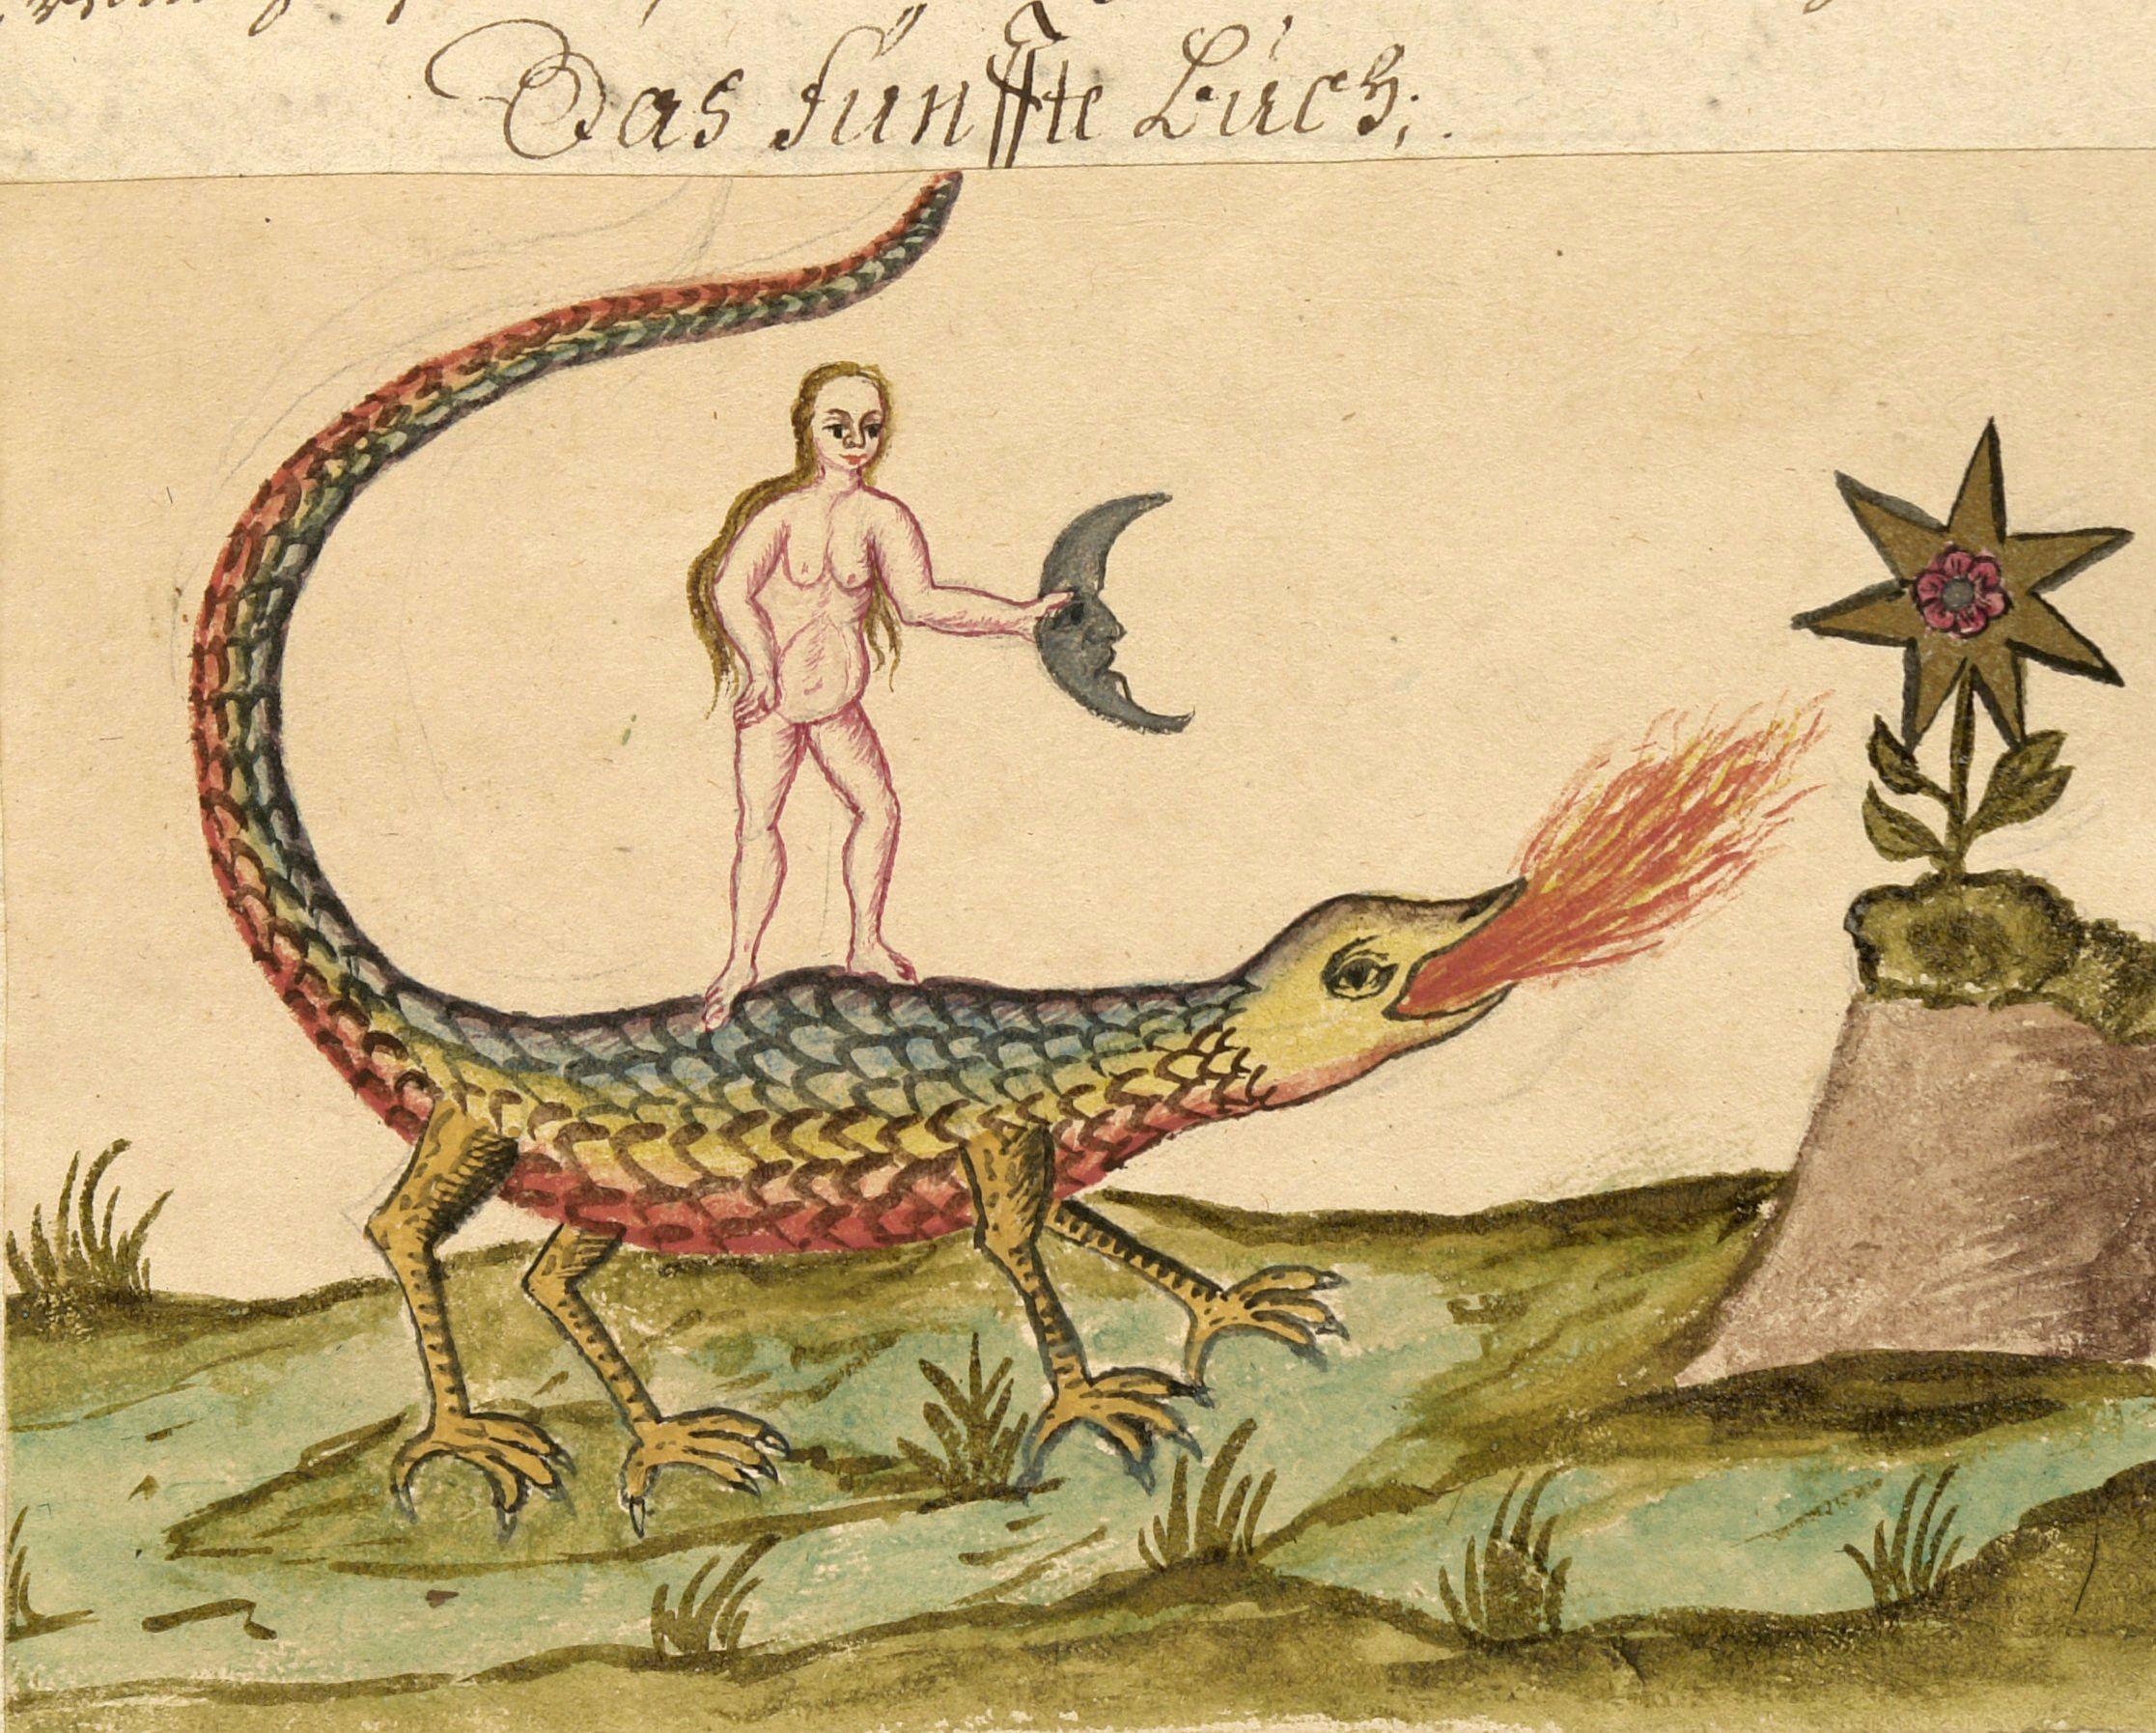 Das fünffte Buch;.